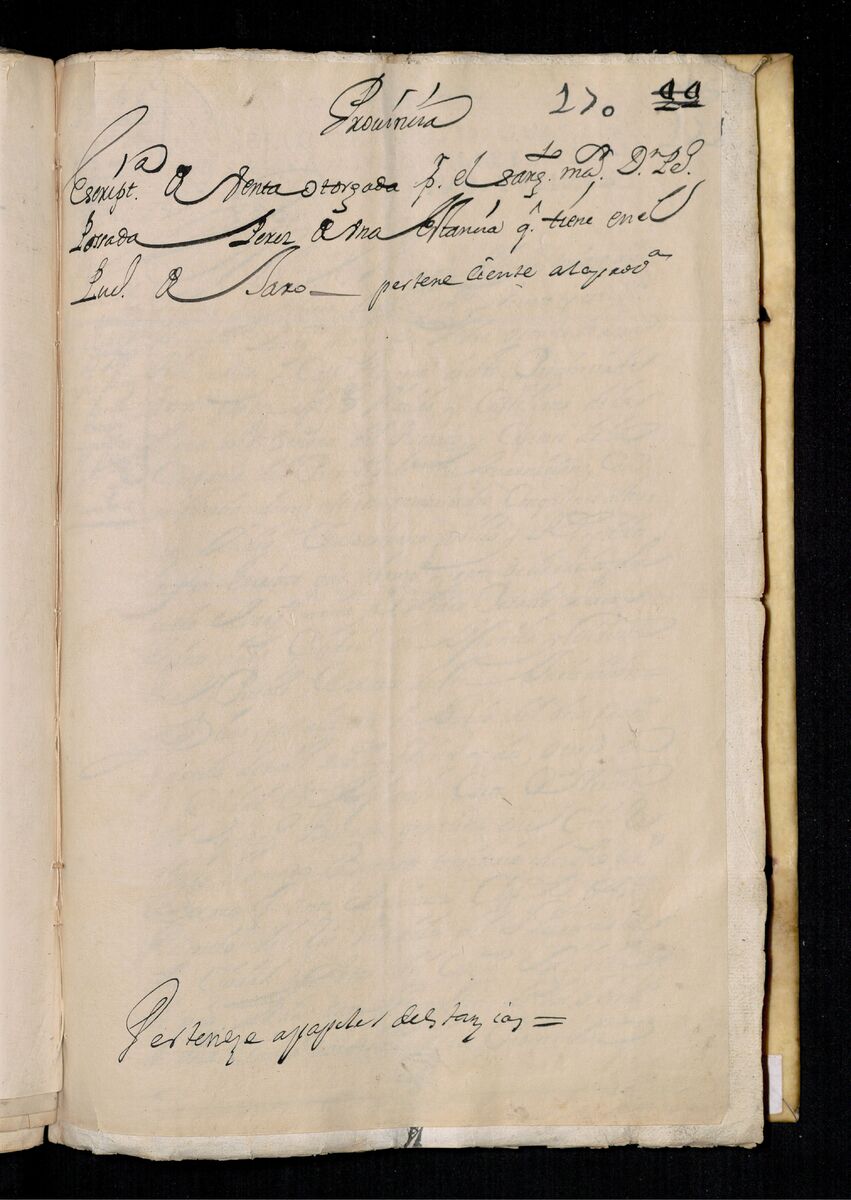 Provincia 270 22
Escript.ra de Venta otorgada p.r el sarg.to ma.r D.n Pe.
Posada Perez de vna Estancia q.e tiene en el
Pue.
de perteneciente a la prov.a
Perteneze a papeles de estanzias =